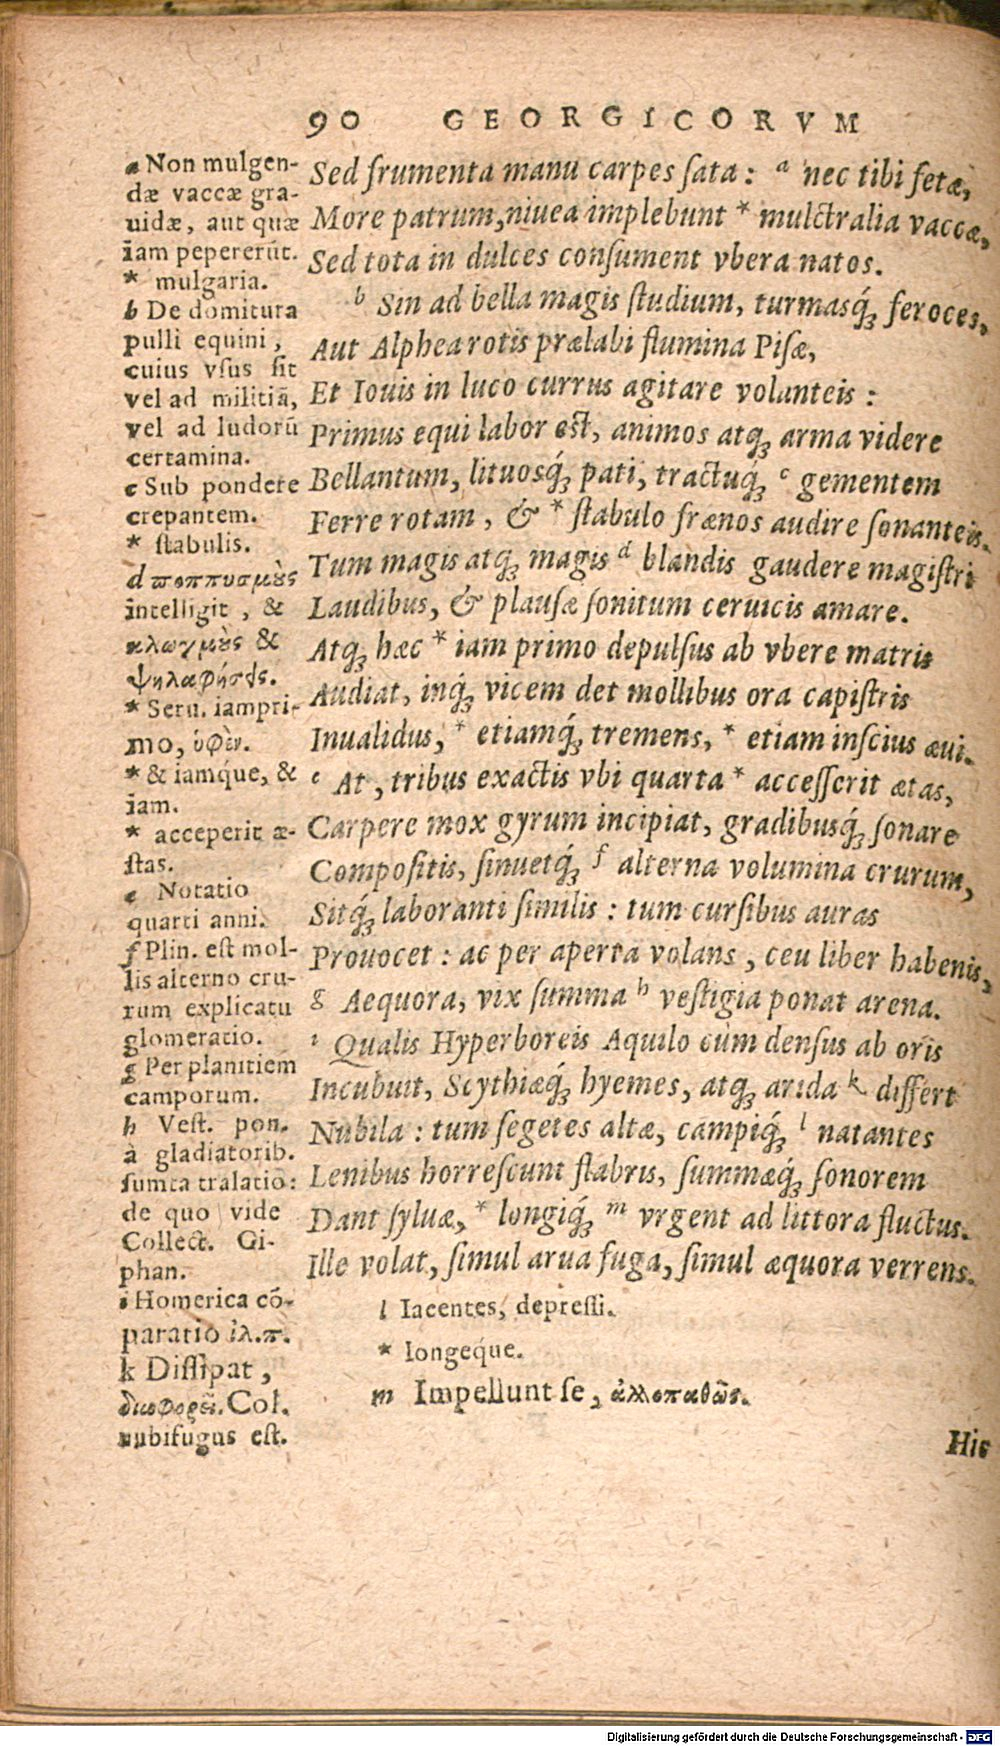 90 GEORGICORVM
Sed frumenta manu carpes ſata : a nec tibi fetæ,
More patrum, niuea implebunt * mulctralia vaccæ,
Sed tota in dulces conſument vbera natos.
b Sin ad bella magis ſtudium, turmasq́ꝫ feroces,
Aut Alphea rotis prælabi flumina Piſæ,
Et Iouis in luco currus agitare volanteis :
Primus equi labor eſt, animos atqꝫ arma videre
Bellantum, lituosq́ꝫ pati, tractuq́ꝫ c gementem
Ferre rotam, & * ſtabulo frænos audire ſonanteis.
Tum magis atqꝫ magis d blandis gaudere magiſtri
Laudibus, & plauſæ ſonitum ceruicis amare.
Atqꝫ hæc * iam primo depulſus ab vbere matris
Audiat, inq́ꝫ vicem det mollibus ora capiſtris
Inualidus, * etiamq́ꝫ tremens, * etiam inſcius æui.
e At, tribus exactis vbi quarta * acceſſerit ætas,
Carpere mox gyrum incipiat, gradibusq́ꝫ ſonare
Compoſitis, ſinuetq́ꝫ f alterna volumina crurum,
Sitq́ꝫ laboranti ſimilis : tum curſibus auras
Prouocet : ac per aperta volans, ceu liber habenis,
g Aequora, vix ſumma h veſtigia ponat arena.
i Qualis Hyperboreis Aquilo cùm denſus ab oris
Incubuit, Scythiæq́ꝫ hyemes, atqꝫ arida k differt
Nubila : tum ſegetes altæ, campiq́ꝫ l natantes
Lenibus horreſcunt flabris, ſummæq́ꝫ ſonorem
Dant ſyluæ, * longiq́ꝫ m vrgent ad littora fluctus.
Ille volat, ſimul arua fuga, ſimul æquora verrens.
a Non mulgen-
dæ vaccæ gra-
uidæ, aut quæ
iam pepererũt.
* mulgaria.
b De domitura
pulli equini,
cuius vſus ſit
vel ad militiã,
vel ad ludorũ
certamina.
c Sub pondere
crepantem.
* ſtabulis.
d ποππυσμὸς
intelligit, &
κλωγμὸς &
ψηλαφήσῃς.
* Seru. iampri-
mo, ὑφὲν.
* & iamque, &
iam.
* acceperit æ-
ſtas.
e Notatio
quarti anni.
f Plin. eſt mol-
lis alterno cru-
rum explicatu
glomeratio.
g Per planitiem
camporum.
h Veſt. pon.
à gladiatorib.
ſumta tralatio:
de quo vide
Collect. Gi-
phan.
i Homerica cõ-
paratio ἰλ.π.
k Diſſipat,
διαφορεῖ. Col.
nubifugus eſt.
l Iacentes, depreſſi.
* longeque.
m Impellunt ſe, ἀλλοπαθῶς.
His
Digitalisierung gefördert durch die Deutsche Forschungsgemeinschaft - DFG